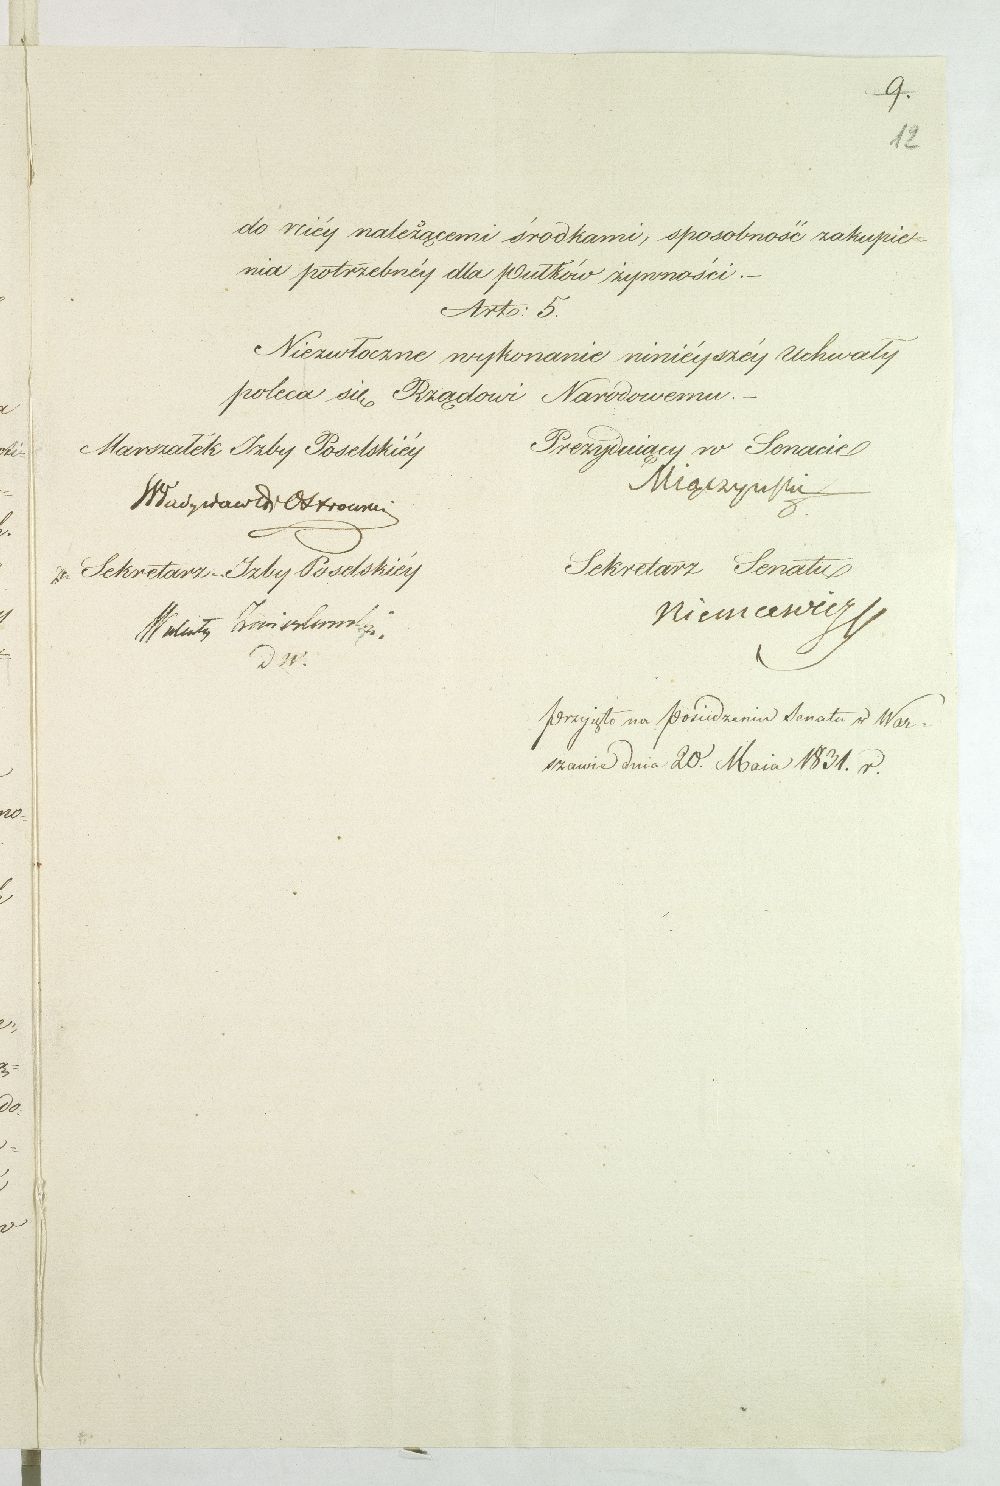 9.
12
do niéy należącemi środkami, sposobność zakupie=
nia potrzebnéy dla Pułków żywności. –
Art: 5.
Niezwłoczne wykonanie niniéyszéy Uchwały
poleca się Rządowi Narodowemu. –
Marszałek Izby Poselskiéy
Władysław Hr Ostrowski
Prezyduiący w Senacie
Miączyński
Sekretarz Izby Poselskiéy
Walenty
D W.
Sekretarz Senatu
Niemcewicz
Przyięto na Posiedzeniu Senatu w War=
szawie dnia 20. Maia 1831. r.